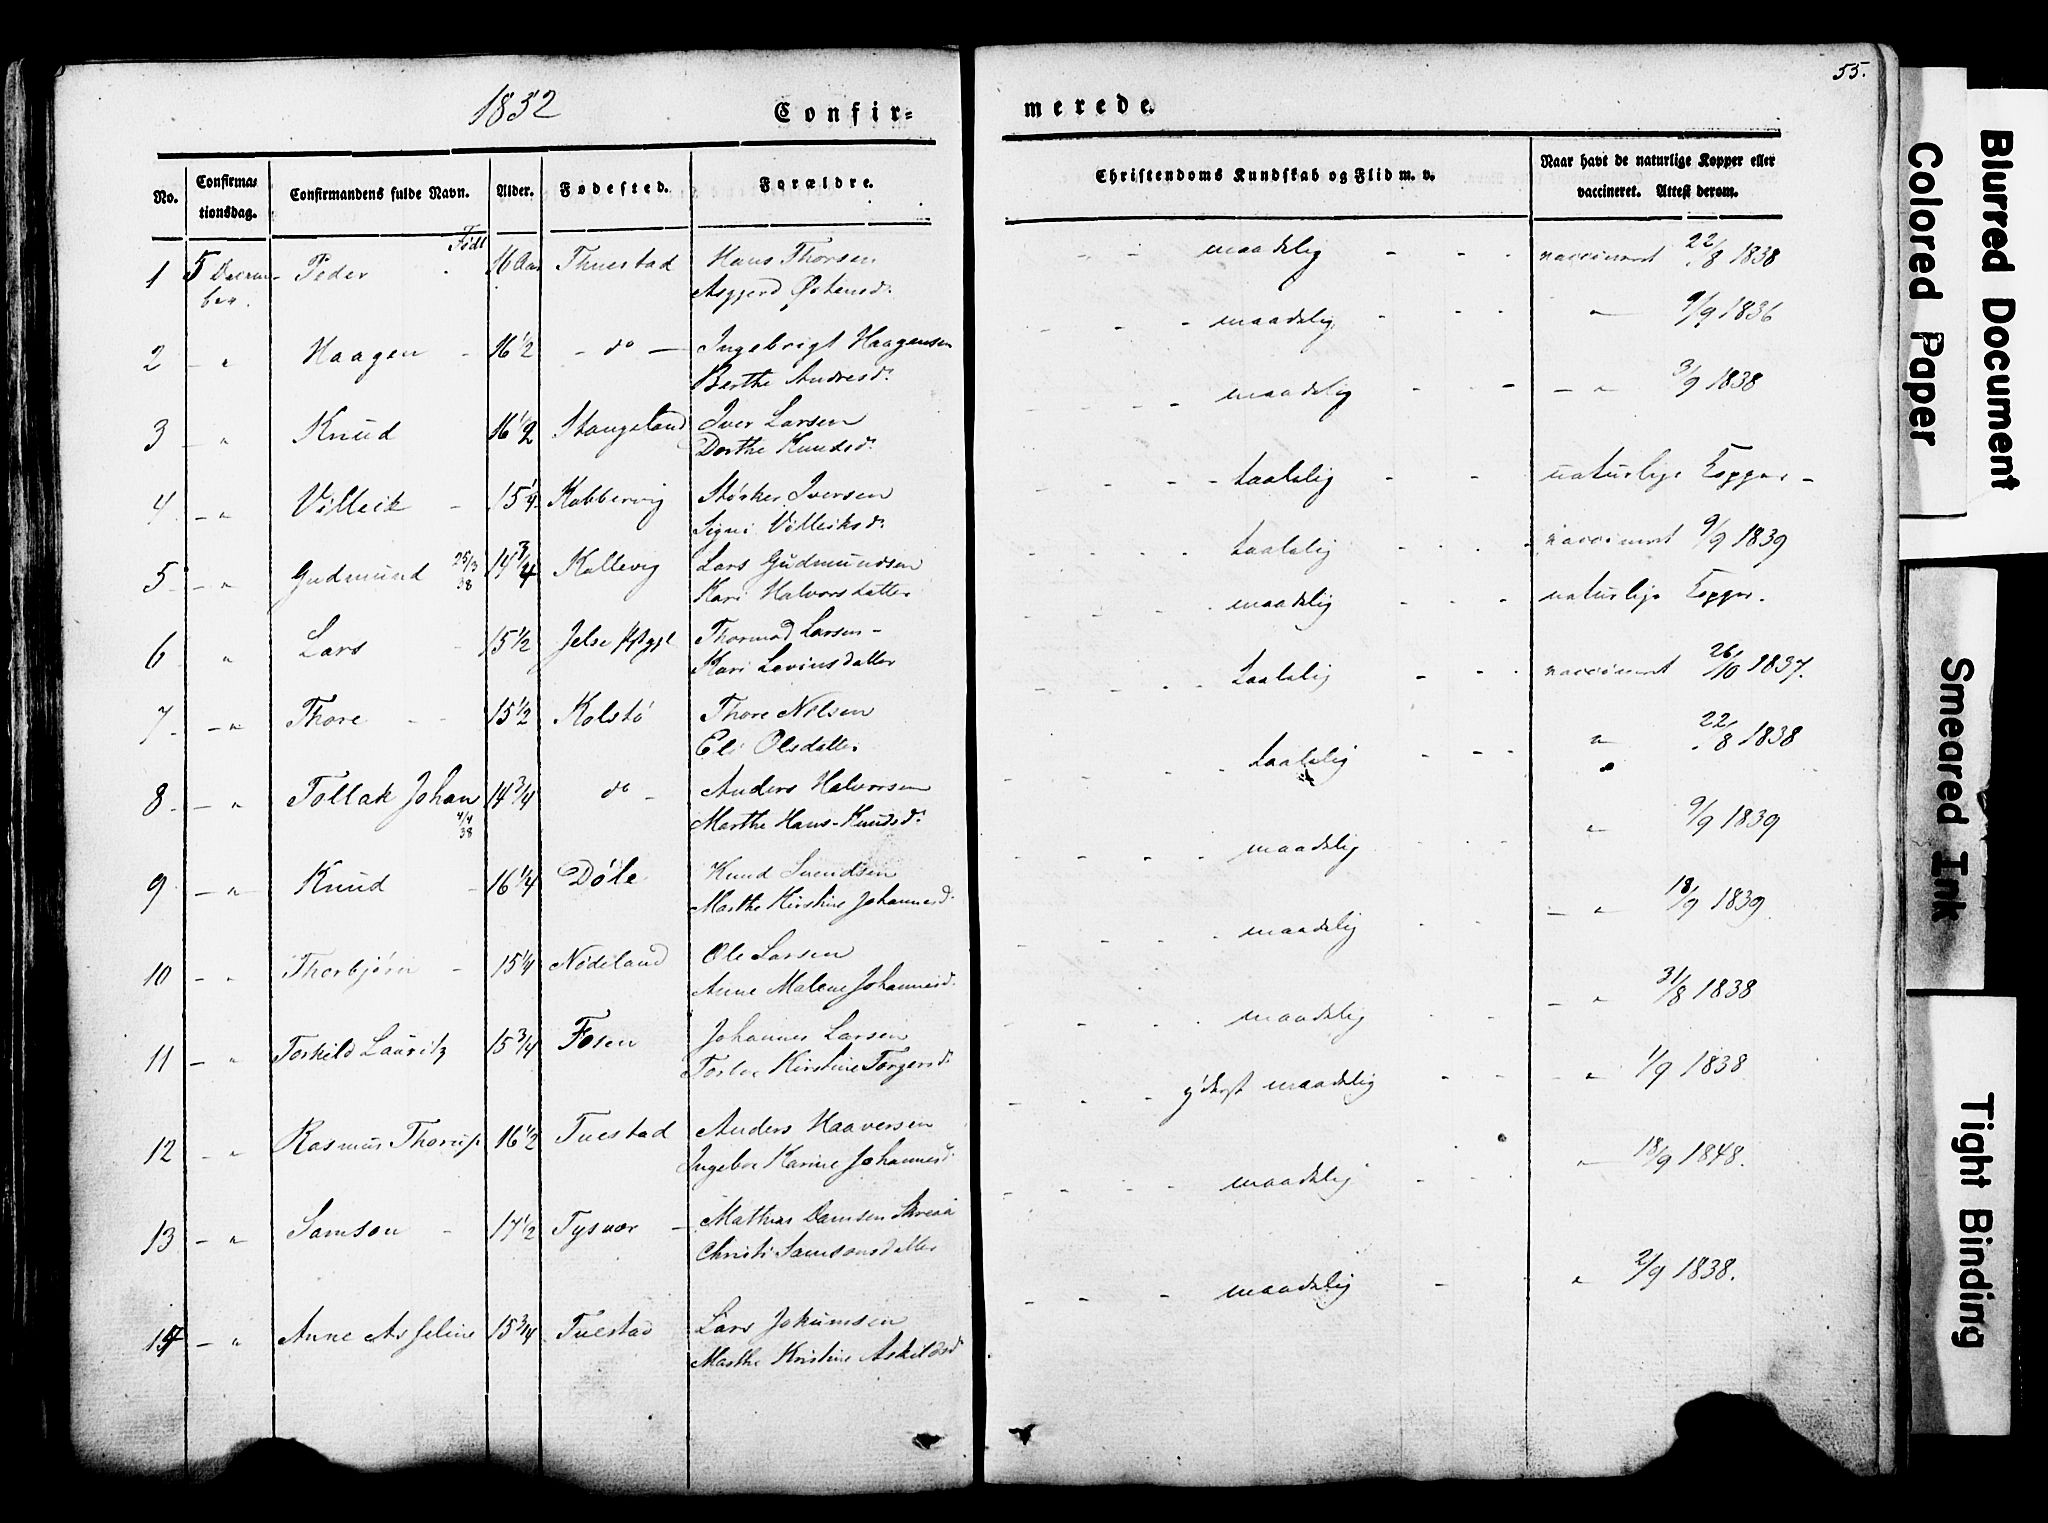 55.
1852
Confir=
merede.
No.
Confirma= tionsdag.
Confirmandens fulde Navn.
Alder.
Fødested.
Forældre.
Christendoms Kundskab og Flid m. v.
Naar havt de naturlige Kopper eller vaccineret. Attest derom.
Født
1 5 Decem- ber. Peder 16 Aar Thuestad Hans Thorsen
Asgjerd Østensd. maadelig vaccineret 22/8 1838
2 — " Haagen 16 1/2 — do — Ingebrigt Haagensen
Berthe Andresd. maadelig " 9/9 1836
3 — " Knud 16 1/2 Stangeland Iver Larsen
Dorthe Knudsd. maadelig — " 3/9 1838
4 — " Villeik 15 1/4 Kabbervig Størker Iversen
Signi Villeiksd. taalelig naturlige Kopper —
5 — " Gudmund 25/3 38 14 3/4 Kallevig Lars Gudmundsen
Kari Halvorsdatter taalelig vaccineret 9/9 1839
6 " Lars 15 1/2 Jelse Thormod Larsen
Kari Lavinsdatter maadelig naturlige Kopper.
7 — " Thore 15 1/2 Kolstø Thore Nilsen
Eli Olsdatter taalelig vaccineret 26/10 1837.
8 — " Tollak Johan 4/4 38 14 3/4 do — Anders Halvorsen
Marthe Hans-Knudsd. taalelig " 22/8 1838
9 — " Knud 16 1/4 Døle Knud Svendsen
Marthe Kirstine Johannesd. maadelig " 9/9 1839
10 — " Thorbjørn 15 1/4 Nødeland Ole Larsen
Anne Malene Johannesd. maadelig — " 18/9 1839
11 — " Torkild Lauritz 15 3/4 Fosen Johannes Larsen
Kirstine Torgersd. maadelig — " 31/8 1838
12 — " Rasmus Thorup 16 1/2 Tuestad Anders Haaversen
Ingebor Karine Johannesd. yderst maadelig — " 1/9 1838
13 — " Samson 17 1/2 Tysvær — Mathias
Christi Samsonsdatter maadelig " 18/9 1848.
14 — " Anne 15 3/4 Tuestad Lars Jokumsen
Marthe Kristine Askildsd. maadelig " 2/9 1838.
Blurred Document
Colored Paper
Smeared Ink
Tight Binding